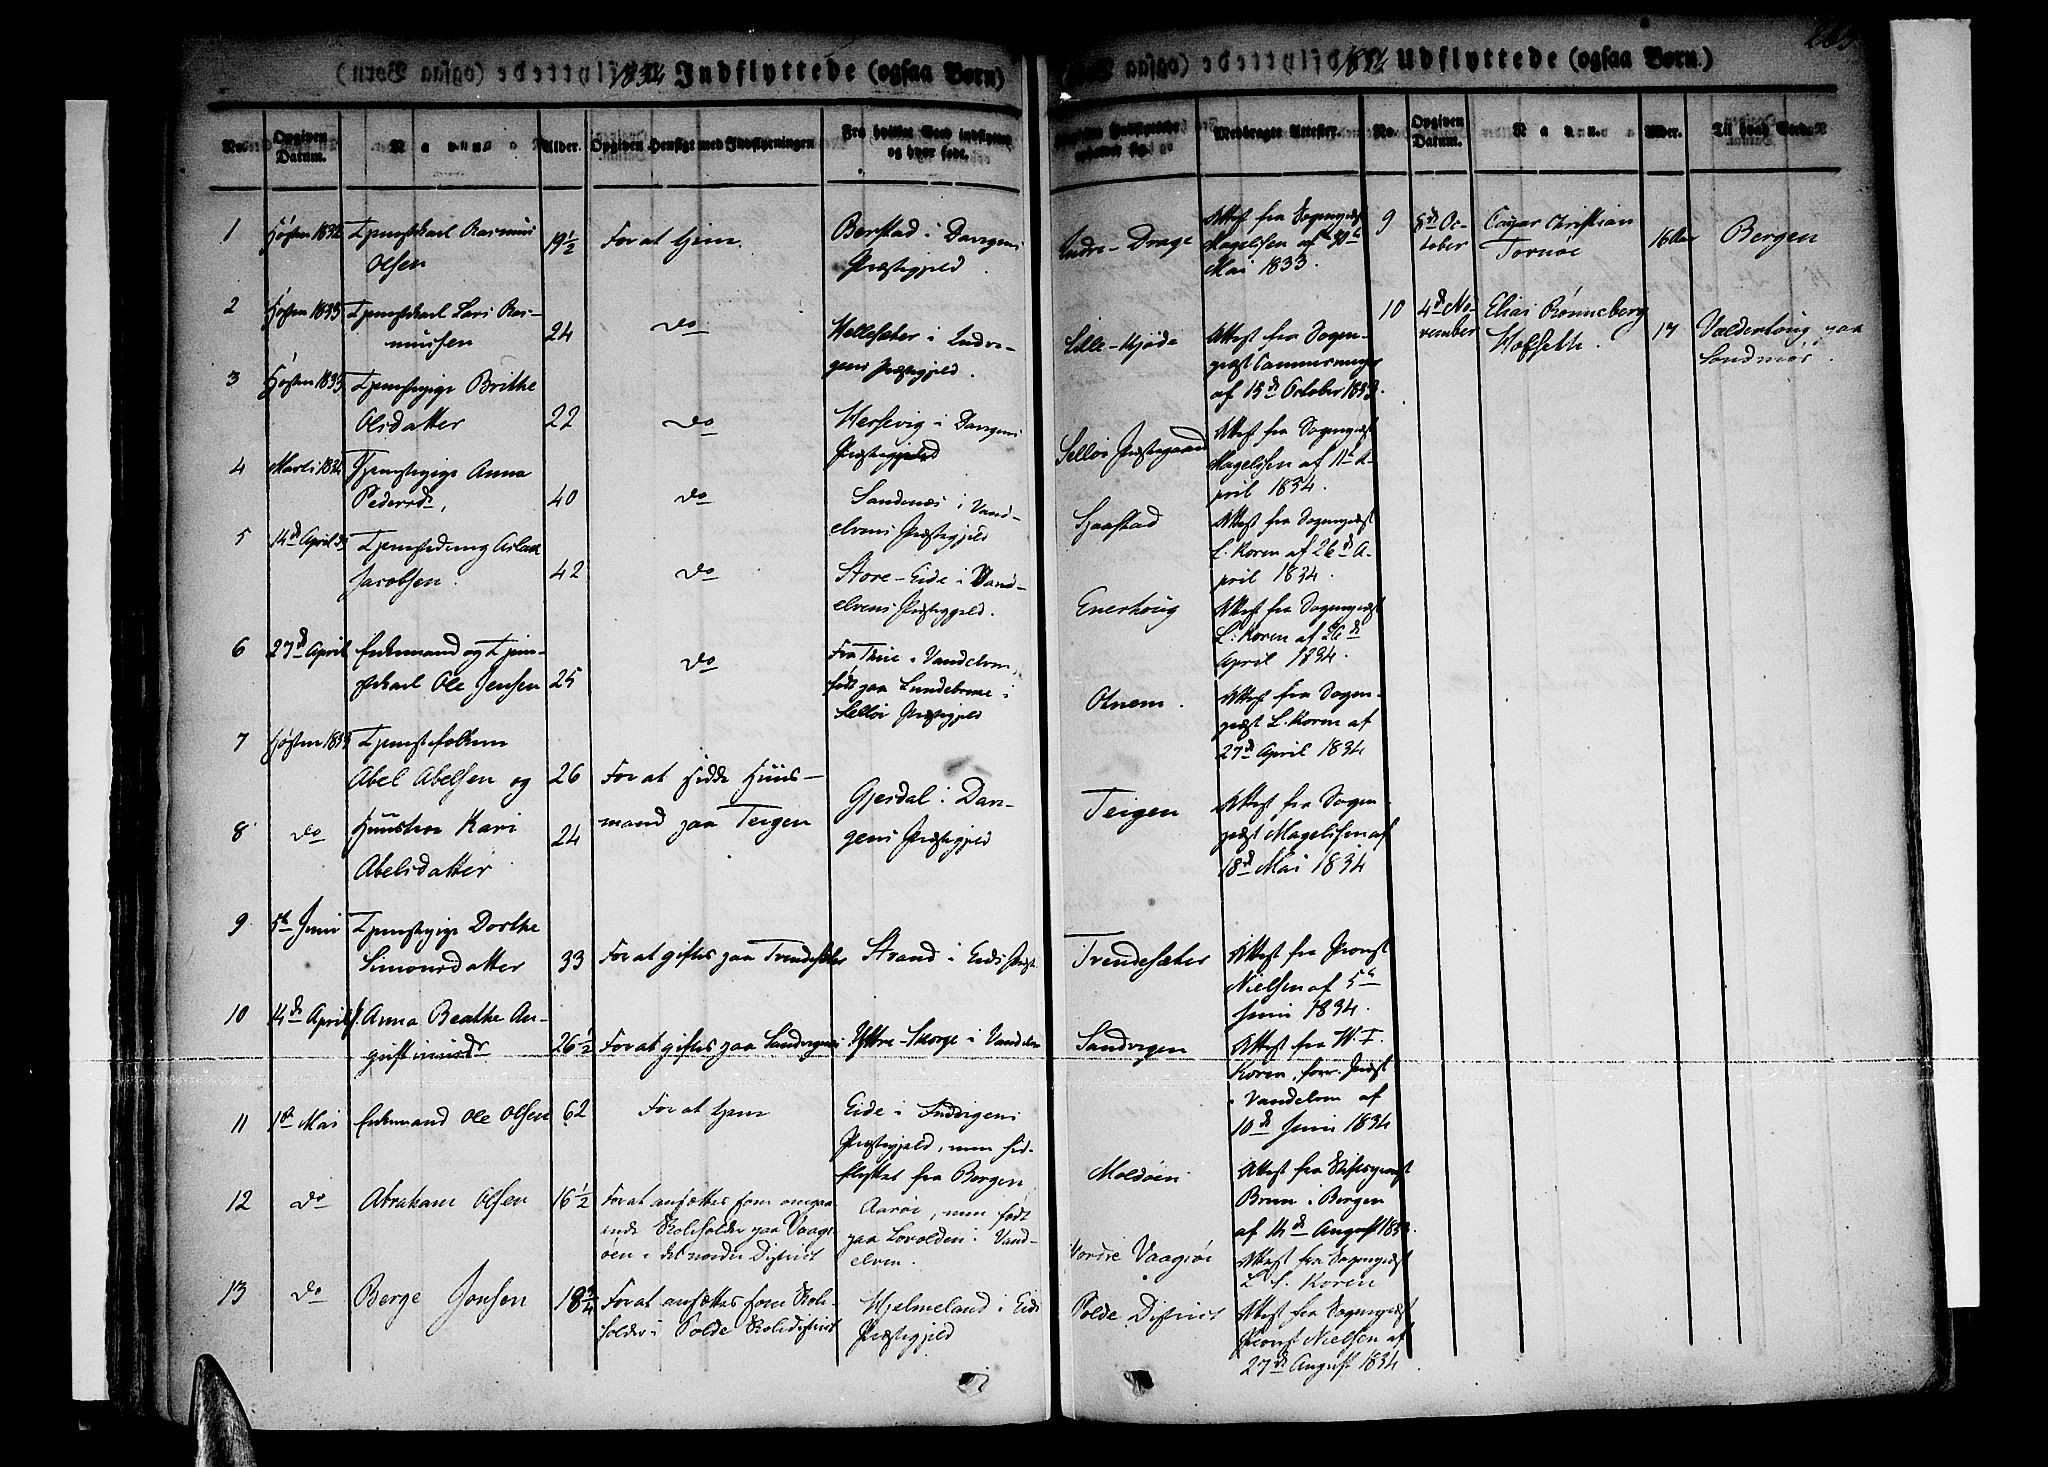 1834 Indflyttede (ogsaa Børn)
No.
Opgiven Datum.
Navn.
Alder.
Opgiven Hensigt med Indflytningen
Fra hvilket Sted indflyttet og hvor født.
Medbragte Attester.
1
Høsten 1832
Tjenestekarl Rasmus
Olsen
19 1/2
For at tjene.
Berstad i Davigens
Præstegjeld.
Indre-Drage
Attest fra Sognepræst
Magelssen af 30te
Mai 1833.
2
Høsten 1833
Tjenestekarl Lars Ras-
mussen
24
do
Hellesæter i Indvi-
gens Præstegjeld.
Lille-
Attest fra Sogne-
præst
af 15de October 1833.
3
Høsten 1833
Tjenestepige Brithe
Olsdatter
22
do
Hessevig i Davigens
Præstegjeld
Selløe Præstegaard
Attest fra Sognepræst
Magelssen af 11te A-
pril 1834.
4
Marts 1834
Tjenestepige Anna
Pedersdr,
40
do
Sandenæs i Vand-
elvens Præstegjeld
Attest fra Sognepræst
L. Koren af 26de A-
pril 1834.
5
14de April
Tjenestedreng Aslak
Jacobsen.
42
do
Store-Eide i Vand-
elvens Præstegjeld.
Enerhoug
Attest fra Sognepræst
L. Koren af 26de
April 1834.
6
27de April
Enkemand og Tjene-
stekarl Ole Jensen
25
do
Fra i Vandelven,
født paa i
Selløe Præstegjeld
Otnem.
Attest fra Sogne-
præst L. Koren af
27de April 1834
7
Høsten 1833
Tjenestefolkene
Abel Abelsen og
26
For at sidde Huus-
mand paa Teigen
Gjesdal i Dav-
gens Præstegjeld
Teigen
Attest fra Sogne-
præst Magelssen af
18de Mai 1834
8
do
Huustroe Kari
Abelsdatter
24
9
5te Juni
Tjenestepige Dorthe
Simonsdatter
33
For at giftes paa Trendesæter
Strand i Eids Præst.
Trendesæter
Attest fra Provst
Nielsen af 5te
Juni 1834.
10
14de April
Anna Beathe Au-
gustinusdr
26 1/2
For at giftes paa Sandvigen
Yttre- i Vandelven
Sandvigen
Attest fra W. T.
Koren, forr. Præst
i Vandelven af
10de Juni 1834
11
1ste Mai
Enkemand Ole Olsen
62
For at tjene
Eide i Indvigens
Præstegjeld, men sidst
flyttet fra Bergen
Moldøen
Attest fra Stiftsprovst
Brun i Bergen
af 14de August 1833.
12
do
Abraham Olsen
16 1/2
For at ansættes som omgaa-
ende Skoleholder paa Vaags-
øen i det nordre District
Aarøe, men født
paa i Vand-
elven.
Nordre Vaagsøe
Attest fra Sognepræst
L. S. Koren
13
do
Berge Jonsen
18 3/4
For at ansættes som Skole-
holder i Polde Skoledistrict
Hjelmeland i Eids
Præstegjeld
Polde District
Attest fra Sognepræst
Provst Nielsen af
27de August 1834.
1834 Udflyttede (ogsaa Børn.)
No.
Opgiven Datum.
Navn.
Alder.
Til hvad Sted.
9
8de Oc-
tober
Caspar Christian
Tornøe
16 Aar
Bergen
10
4de No-
vember
Elias Rønneberg
Hofseth.
17
Valderhoug paa
Søndmør.